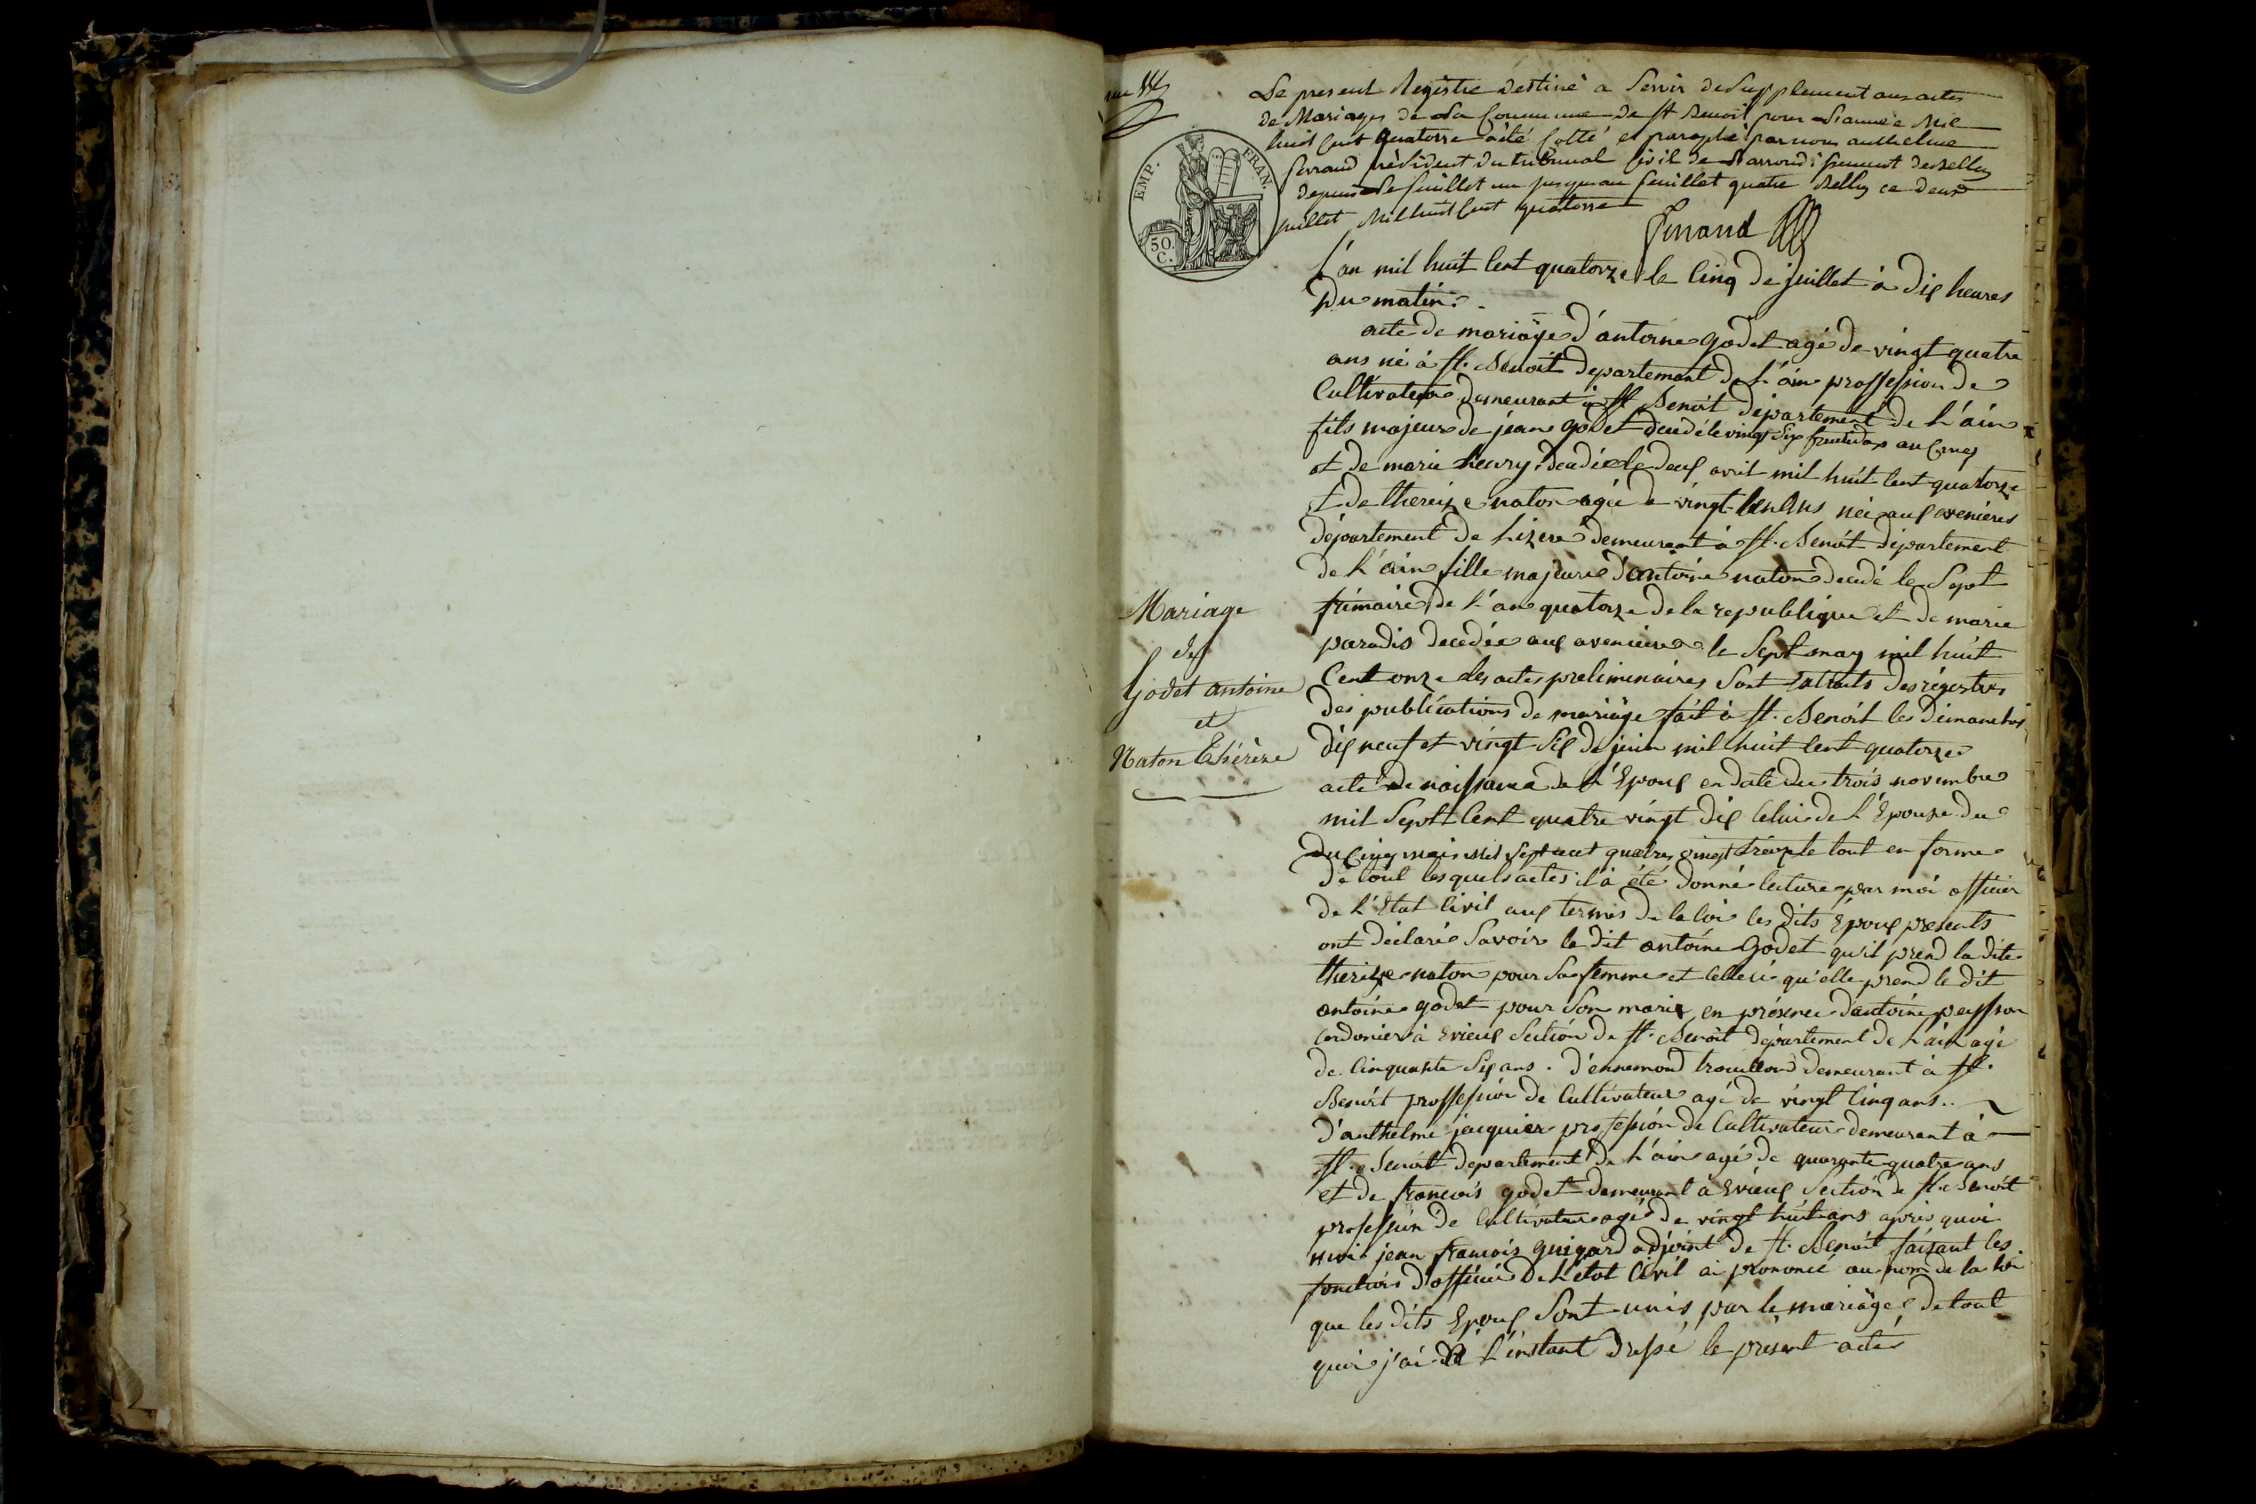 Le present Registre destiné a Servir de Supplement aux actes
de Mariages de La Commune de St Benoit pour L'année Mil
huit Cent Quatorze a été Cotté et paraphé par nous anthelme
ferrand président du tribunal Civil de L'arrondissement de Belley
depuis Le feuillet un jusqu'au feuillet quatre Belley ce deux
juillet Mil huit Cent quatorze
EMP. FRAN.
50. C.
L'an mil huit Cent quatorze le Cinq de juillet à dix heures
Du matin.
acte de mariäge d'antoine godet agé de vingt quatre
ans né à St. Benoit departement de L'ain proffession de
Cultivateur demeurant à St Benoit département de L'ain
fils majeur de jean godet decedé le vingt Six fructidor an Cinq
et de marie henry decedée le deux avril mil huit Cent quatorze
Et de thereize naton agée de vingt un Ans née aux avenieres
département de Lizere demeurant à St. Benoit departement
de L'ain fille majeure d'antoine naton decedé le Sept
frimaire de L'an quatorze de la republique et de marie
paradis decedée aux avenieres le Sept may mil huit
Cent onze les actes preliminaires Sont Extraits des régistres
des publications de mariäge fait à St. Benoit les dimanches
dix neuf et vingt Six de juin mil huit Cent quatorze
acte de naissance de L'Epoux en date du trois novembre
mil Sept Cent quatre vingt dix Celui de L'Epouse du
du Cinq mars mil Sept cent quatre vingt treize le tout en forme
de tout les quels actes il à été donné lecture par moi officier
de L'Etat Civil aux termes de la loi les dits Epoux presents
ont déclaré Savoir le dit antoine Godet qu'il prend la dite
therize naton pour Sa femme et Celle ci qu'elle prend le dit
antoine godet pour Son marie, en présence d'antoine peysson
Cordonier à Evieux Section de St. Benoit département de L'ain agé
de Cinquante Six ans. d'ennemond trouillond demeurant à St.
Benoit proffession de Cultivateur agé de vingt Cinq ans..
d'anthelme jacquier profession de Cultivateur demeurant à
St. Benoit departement de L'ain agé de quarante quatre ans
et de francois godet demeurant à Evieux Section de St. Benoit
profession de Cultivateur agé de vingt huit ans après quoi
moi jean francois guigard adjoint de St. Benoit faisant les
fonctions d'officier de L'état Civil ai prononcé au nom de la loi
que les dits Epoux Sont unis par le mariäge de tout
quoi j'ai à L'instant dressé le présent acte
Mariage
de
Godet Antoine
et
Naton Thérèze